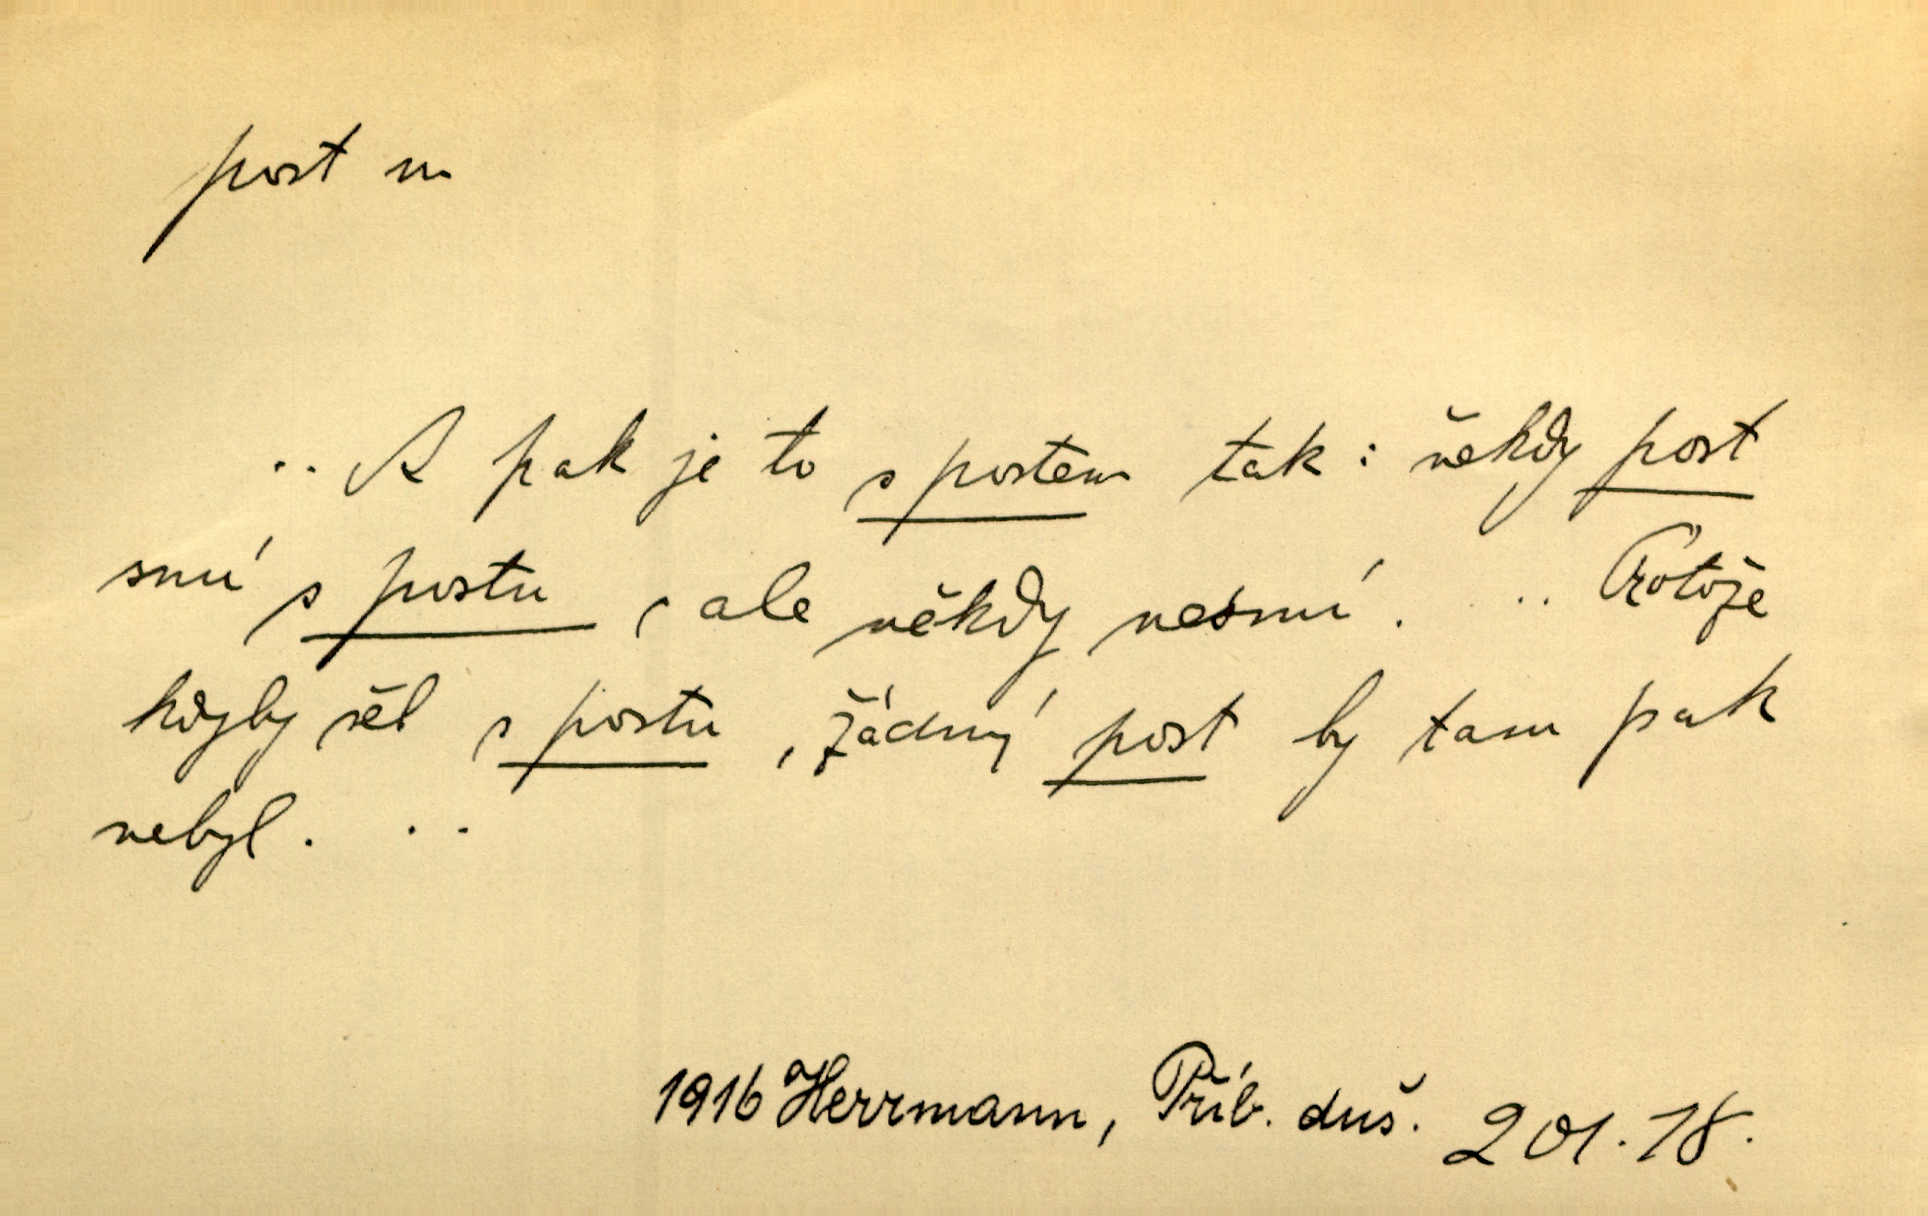 post m
.. A pak je to s postem tak: někdy post
smí s postu, ale někdy nesmí. .. Protože
kdyby šel s postu, žádný post by tam pak
nebyl. ..
1916 Herrmann, Příb. duš. 201.18.